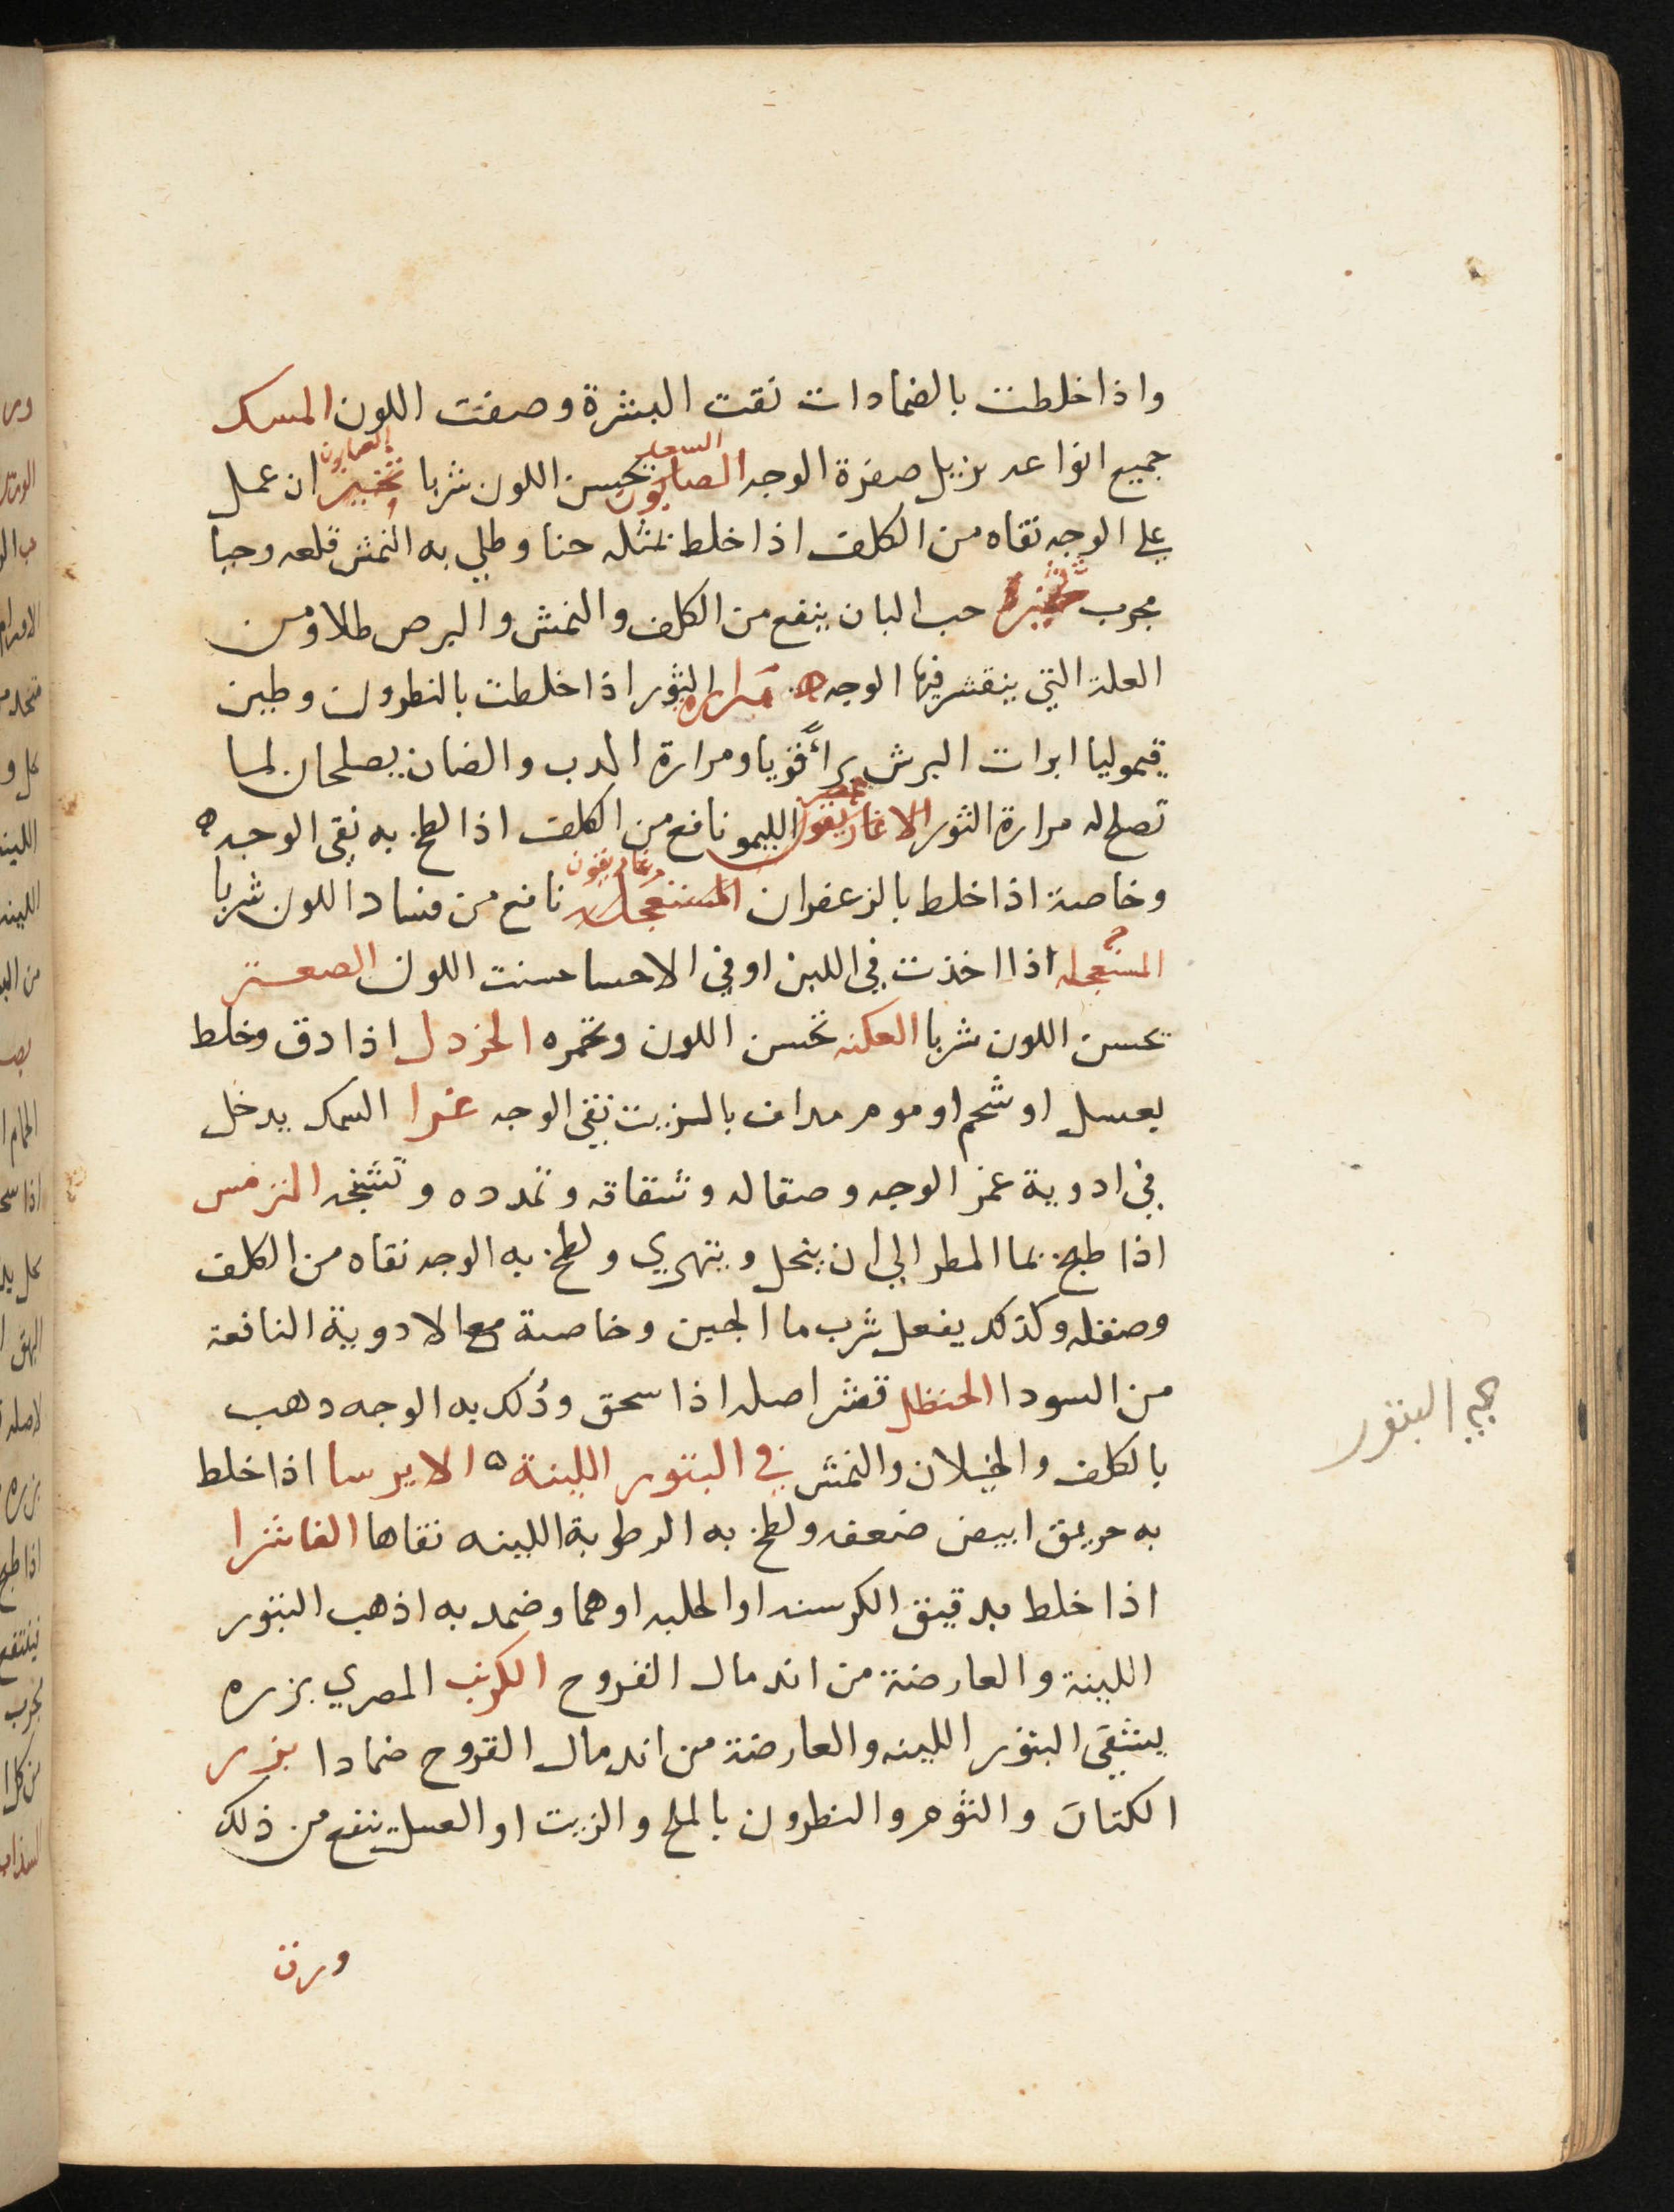 واذا خلطت بالضمادات نقت البشرة وصفت اللون المسك
جميع انواعه يزيل صفرة الوجه الصابون السعد تحسن اللون شربا الصابون ان عمل
على الوجه نقاه من الكلف اذا خلط بمثله حنا وطلي به النمش قلعه وحيا
مجرب حب البان ينفع من الكلف والنمش والبرص طلا ومن
العلة التي ينقشر فيها الوجه ه مرارة الثور اذا خلطت بالنطرون وطين
قيموليا ابرات البرش براً قويا ومرارة الدب والضان يصلحان لما
تصلح له مرارة الثور الاغاريقون الليمو نافع من الكلف اذا لطخ به نقى الوجه ه
وخاصة اذا خلط بالزعفران المستعجله نافع من فساد اللون شربا
المستعجله اذا اخذت في اللبن او في الاحسا حسنت اللون الصعتر
تحسن اللون شربا العكنه تحسن اللون وتحمره الخردل اذا دق وخلط
بعسل او شحم او موم مداف بالزيت نقى الوجه غرا السمك يدخل
في ادوية غمز الوجه وصقاله وشقاقه وتمدده وتشنجه الترمس
اذا طبخ بما المطر الي ان ينحل ويتهري ولطخ به الوجه نقاه من الكلف
وصقله وكذلك يفعل شرب ما الجبن وخاصة مع الادوية النافعة
من السودا الحنظل قشر اصله اذا سحق ودُلك به الوجه دهب
بالكلف والخيلان والنمش في البثور اللبنة ه الايرسا اذا خلط
به خريق ابيض ضعفه ولطخ به الرطوبة اللبينه نقاها الفاشرا
اذا خلط بدقيق الكرسنه او الحلبه اوهما وضمد به اذهب البثور
اللبنية والعارضة من اندمال القروح الكرنب المصري بزره
ينقي البثور اللبينه والعارضة من اندمال القروح ضمادا بزر
الكتان والثوم والنطرون بالملح والزيت او العسل ينفع من ذلك
ورق
البثور